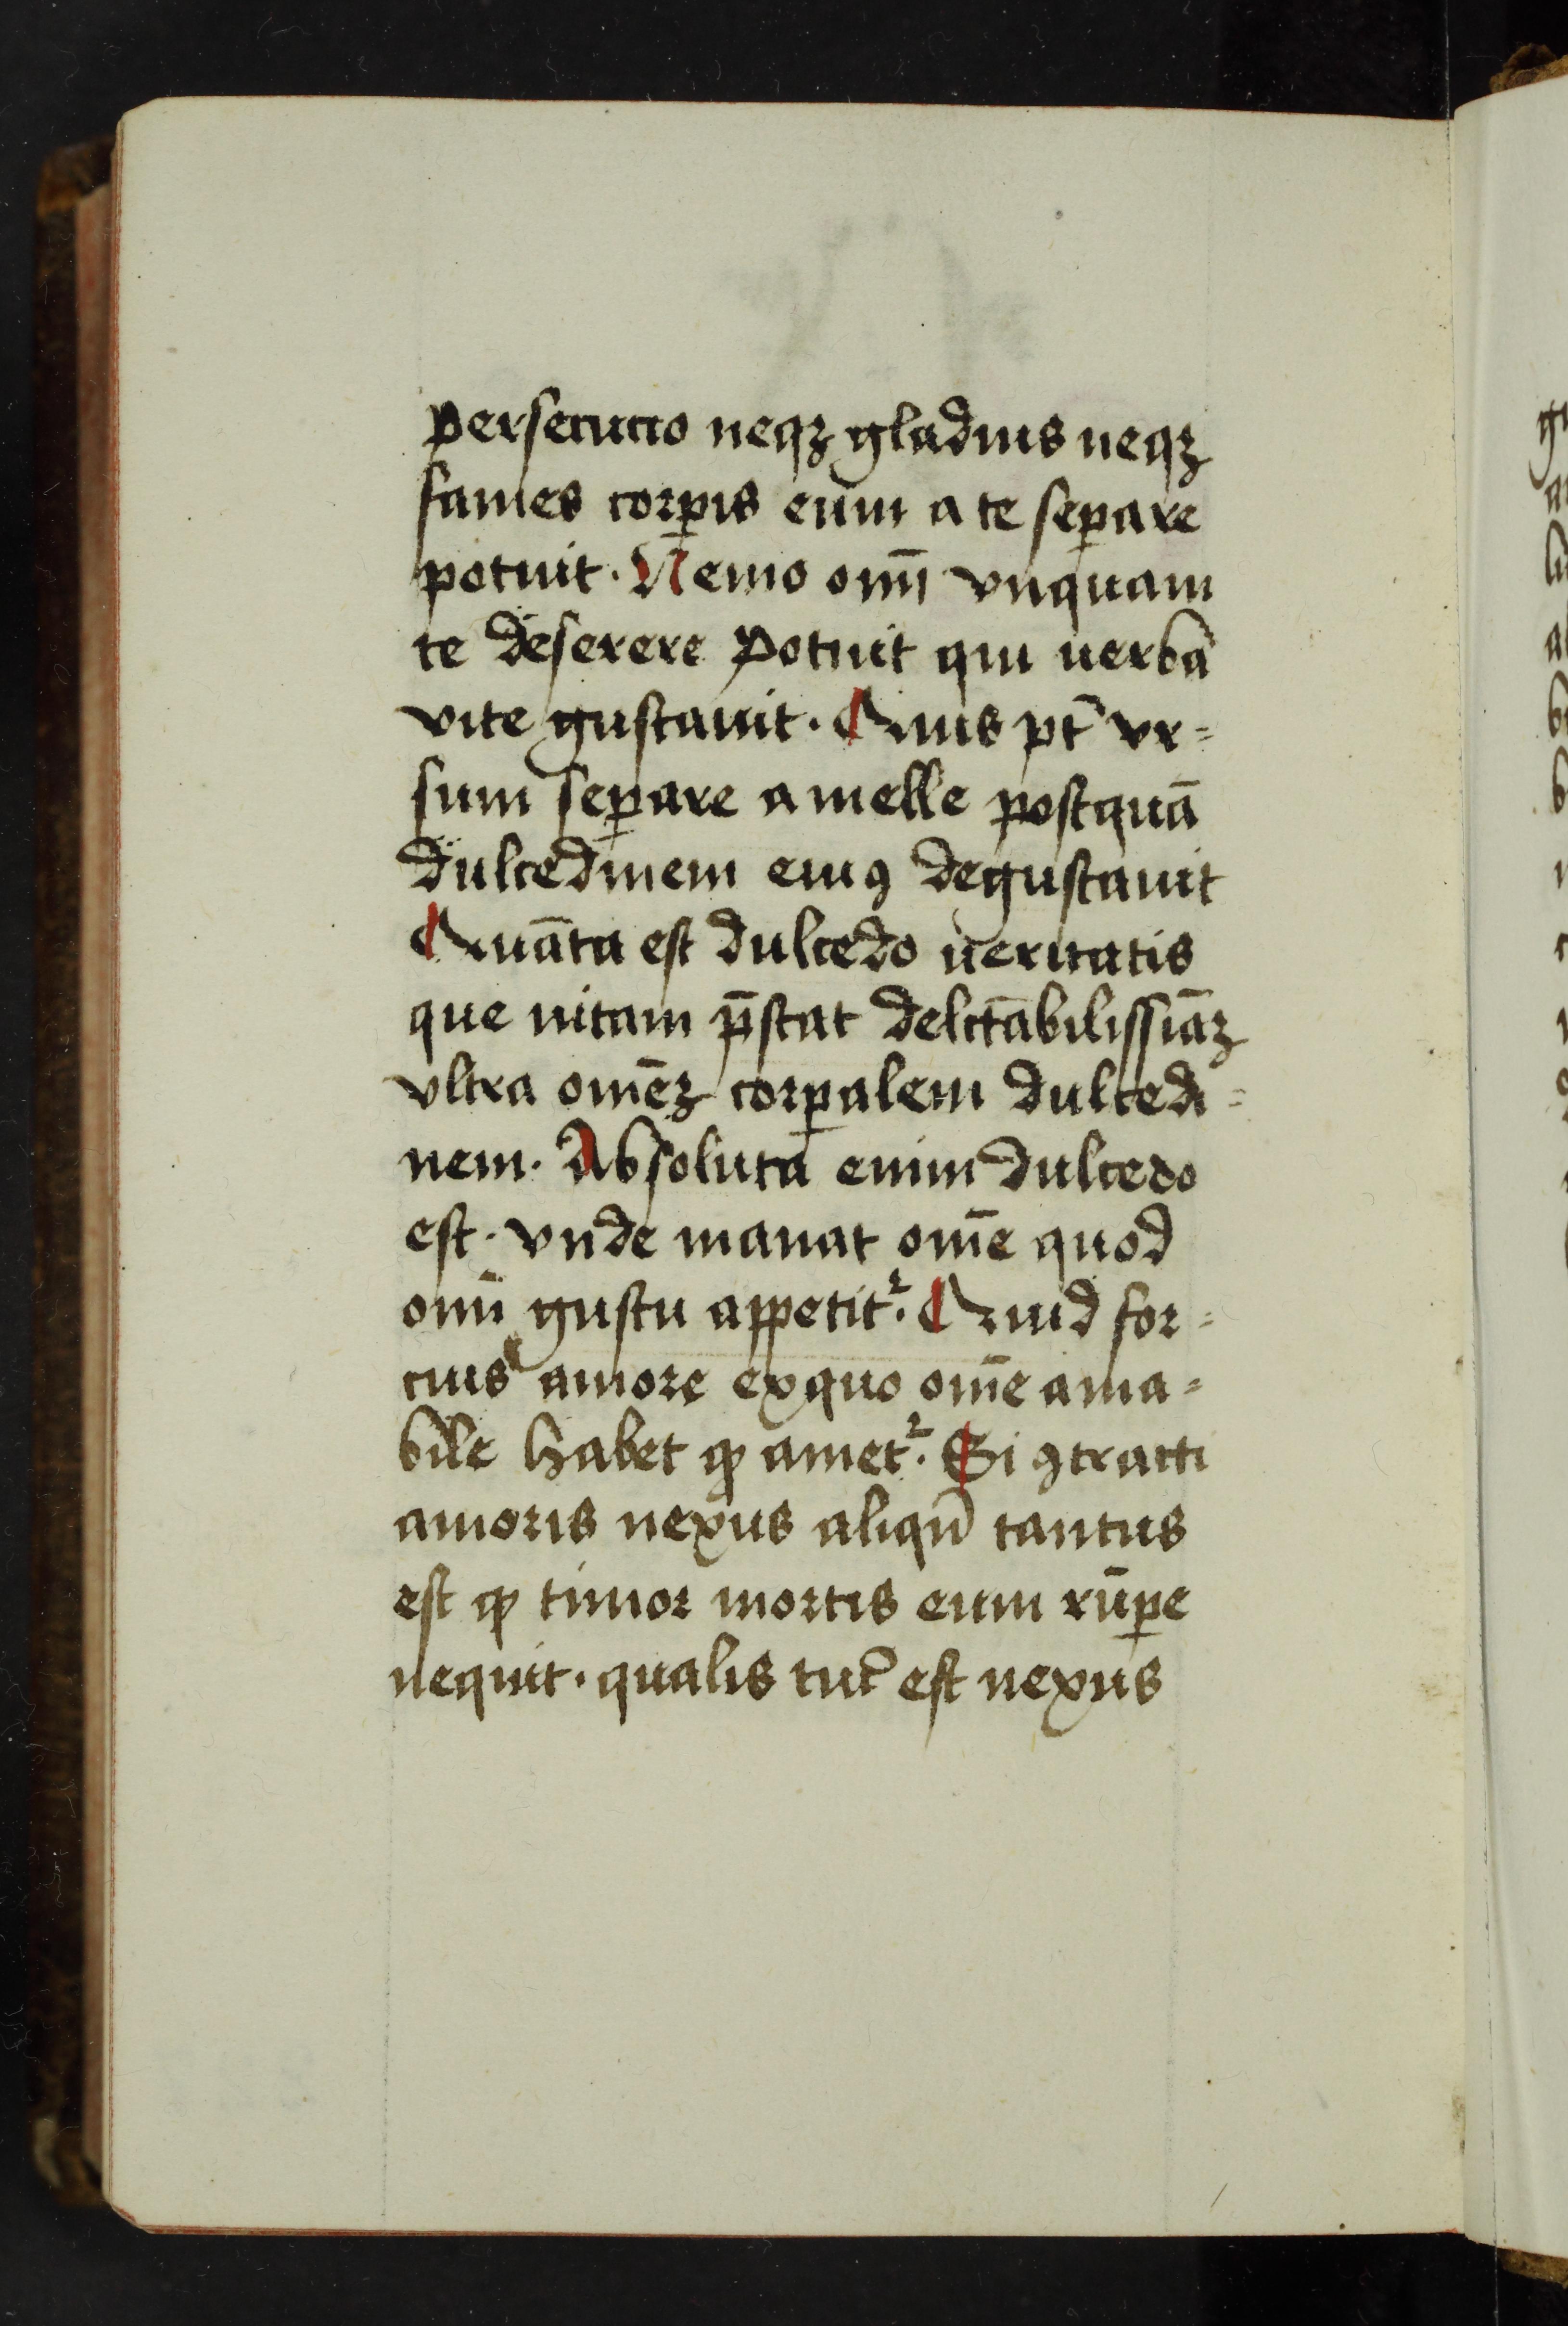 persecucio neqꝫ gladius neqꝫ
fames corꝑis eum a te seꝑare
potuit. Nemo omī vnquam
te deserere potuit qui uerba
vite gustauit. Quis pt̄ vr=
sum seꝑare a melle postquā
dulcedinem eiuꝰ degustauit
Quāta est dulcedo ueritatis
que uitam p̄stat delctābilissiāꝫ
vltra omēꝫ corꝑalem dulcedi=
nem. Absoluta enim dulcedo
est. vnde manat om̄e quod
omī gustu appetit᷑. Quid for=
cius amore ex quo om̄e ama=
bile habet ꝙ amet᷑. Si ꝯtracti
amoris nexus aliqn̄ tantus
est ꝙ timor mortis eum rūpe
nequit. qualis tūc est nexus